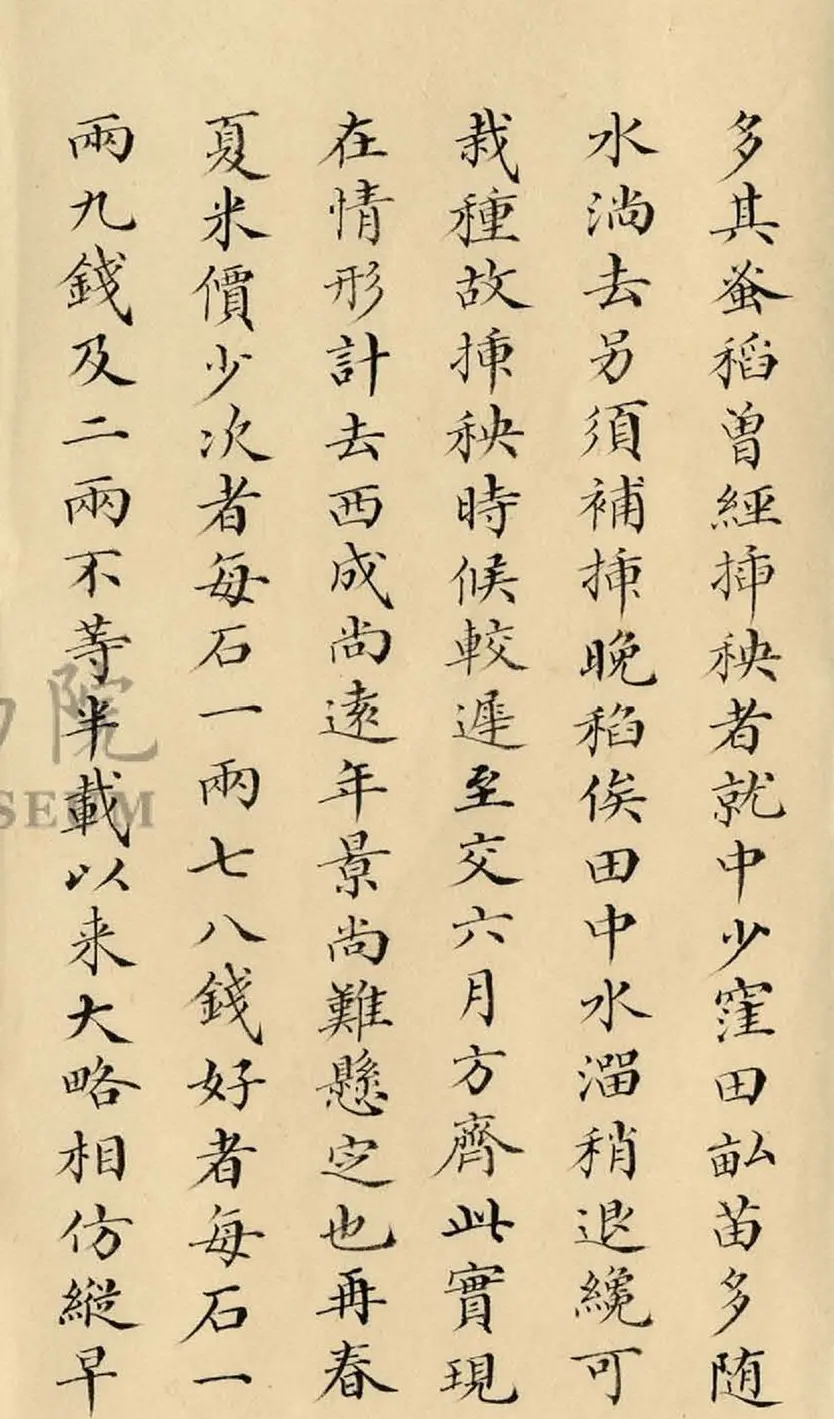 多其蚤稻曾經挿秧者就中少窪田畝苗多随
水淌去另須補挿晚稻俟田中水溜稍退纔可
栽種故挿秧時候較遲至交六月方齊此實現
在情形計去西成尚遠年景尚難懸定也再春
夏米價少次者每石一兩七八錢好者每石一
兩九錢及二兩不等半載以来大略相仿縱早
院
SEUM